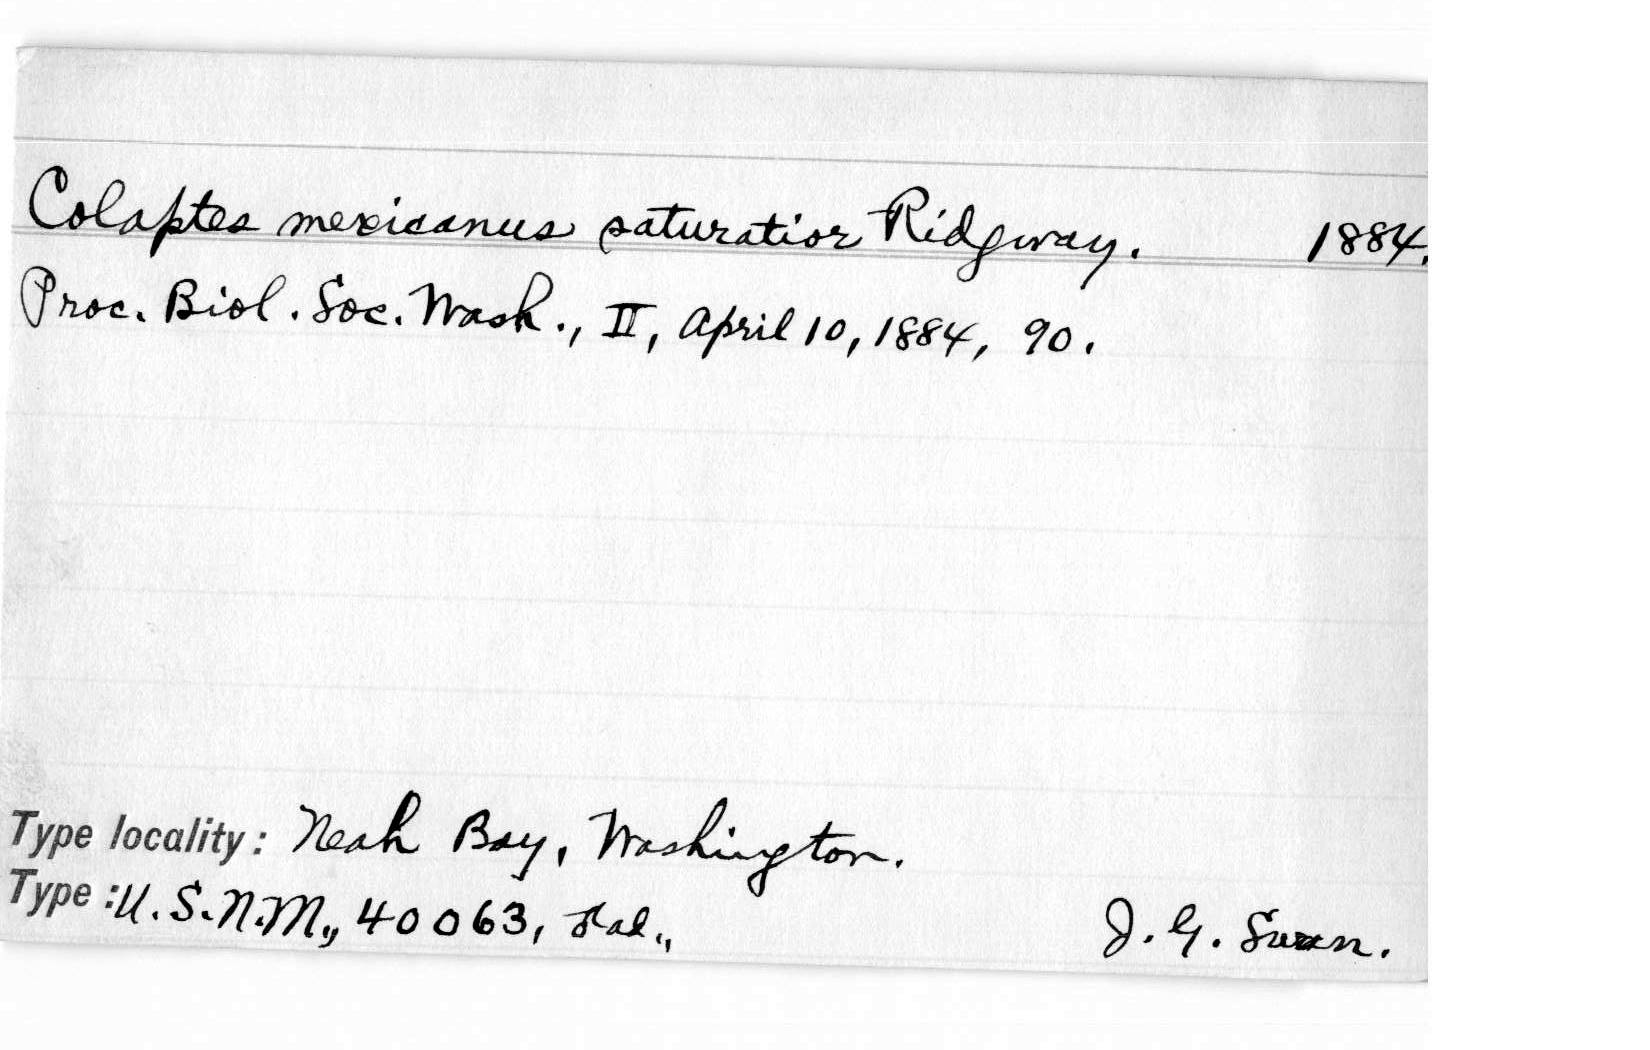 Colaptes mexicanus saturatior Ridgway. 1884.
Proc. Biol. Soc. Wash., II, April 10, 1884, 90.
Type locality: Neah Bay, Washington.
Type: U.S.N.M., 40063, ♂ ad., J. G. Swan.